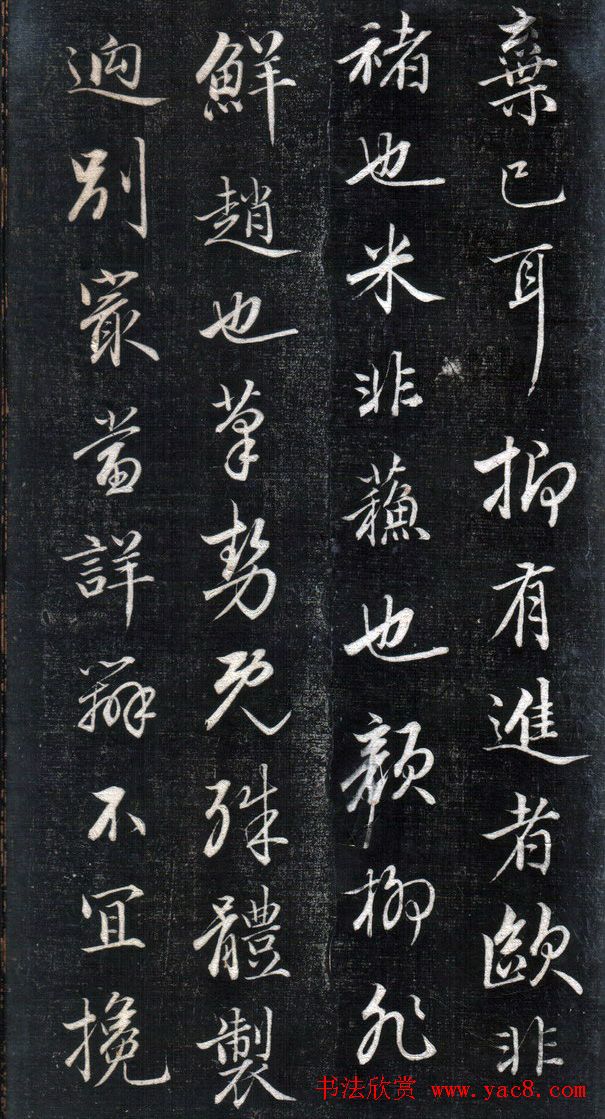 棄已耳抑有進者歐非
褚也米非蘓也顏柳非
鮮趙也筆勢既殊體製
逈別㝡當詳辯不宜攙
书法欣赏 www.yac8.com